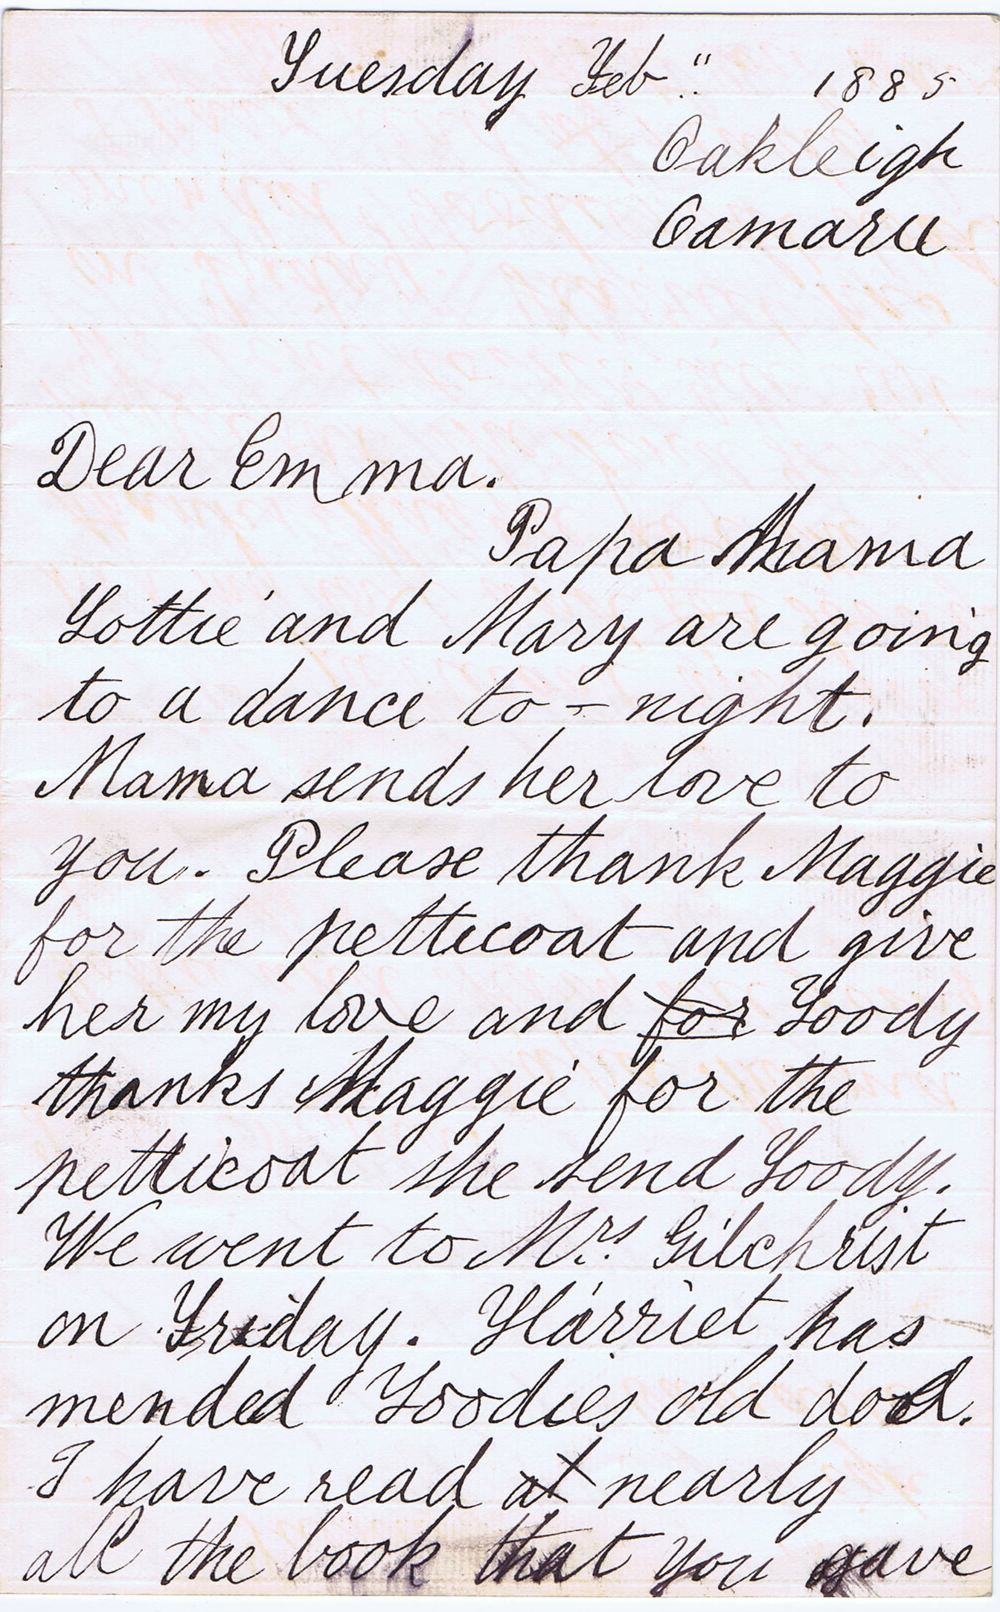 Tuesday Feb " 1885
Oakleigh
Oamaru
Dear Emma.
Papa Mama
Lottie and Mary are going
to a dance to-night.
Mama sends her love to
you. Please thank Maggie
for the petticoat and give
her my love and for Toody
thanks Maggie for the
petticoat she send Toody.
We went to Mrs. Gilchrist
on Friday. Harriet has
mended Toodies old dod.
I have read at nearly
all the book that you gave